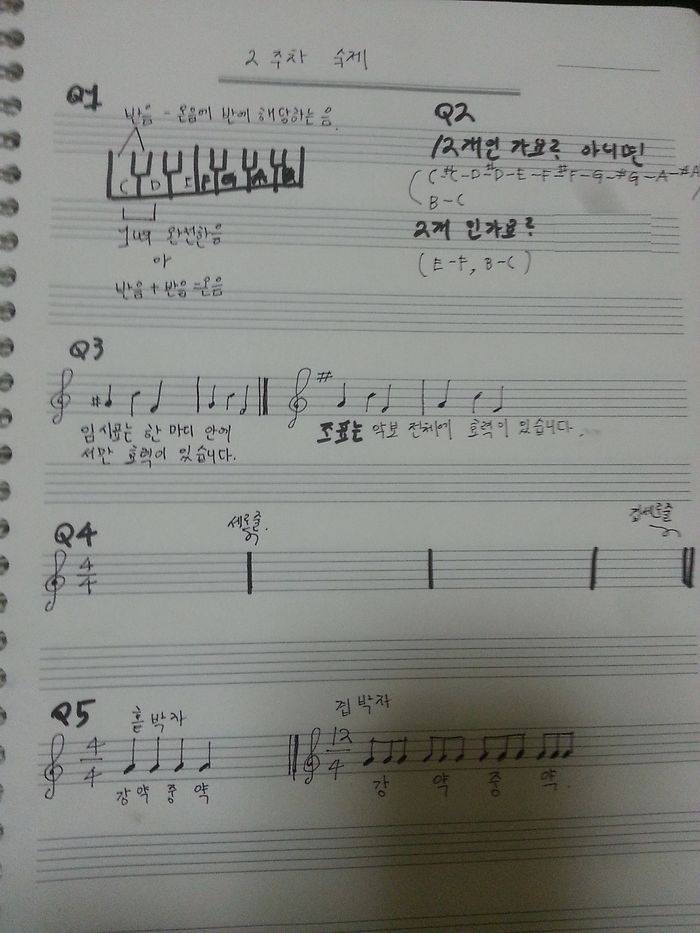 2주차 숙제
Q1
반음 - 온음에 반에 해당하는 음.
C D E F G A B
완전한음
or
반음 + 반음 = 온음
Q2
12개인가요? 아니면
(C-#C-D-#D-E-F-#F-G-#G-A-#A
B-C
2개 인가요?
(E-F, B-C)
Q3
#
#
임시표는 한 마디 안에
서만 효력이 있습니다.
조표는 악보 전체에 효력이 있습니다.
Q4
세로줄.
겹세로줄
4/4
Q5
홑박자
겹박자
4/4
12/4
강 약 중 약
강 약 중 약.